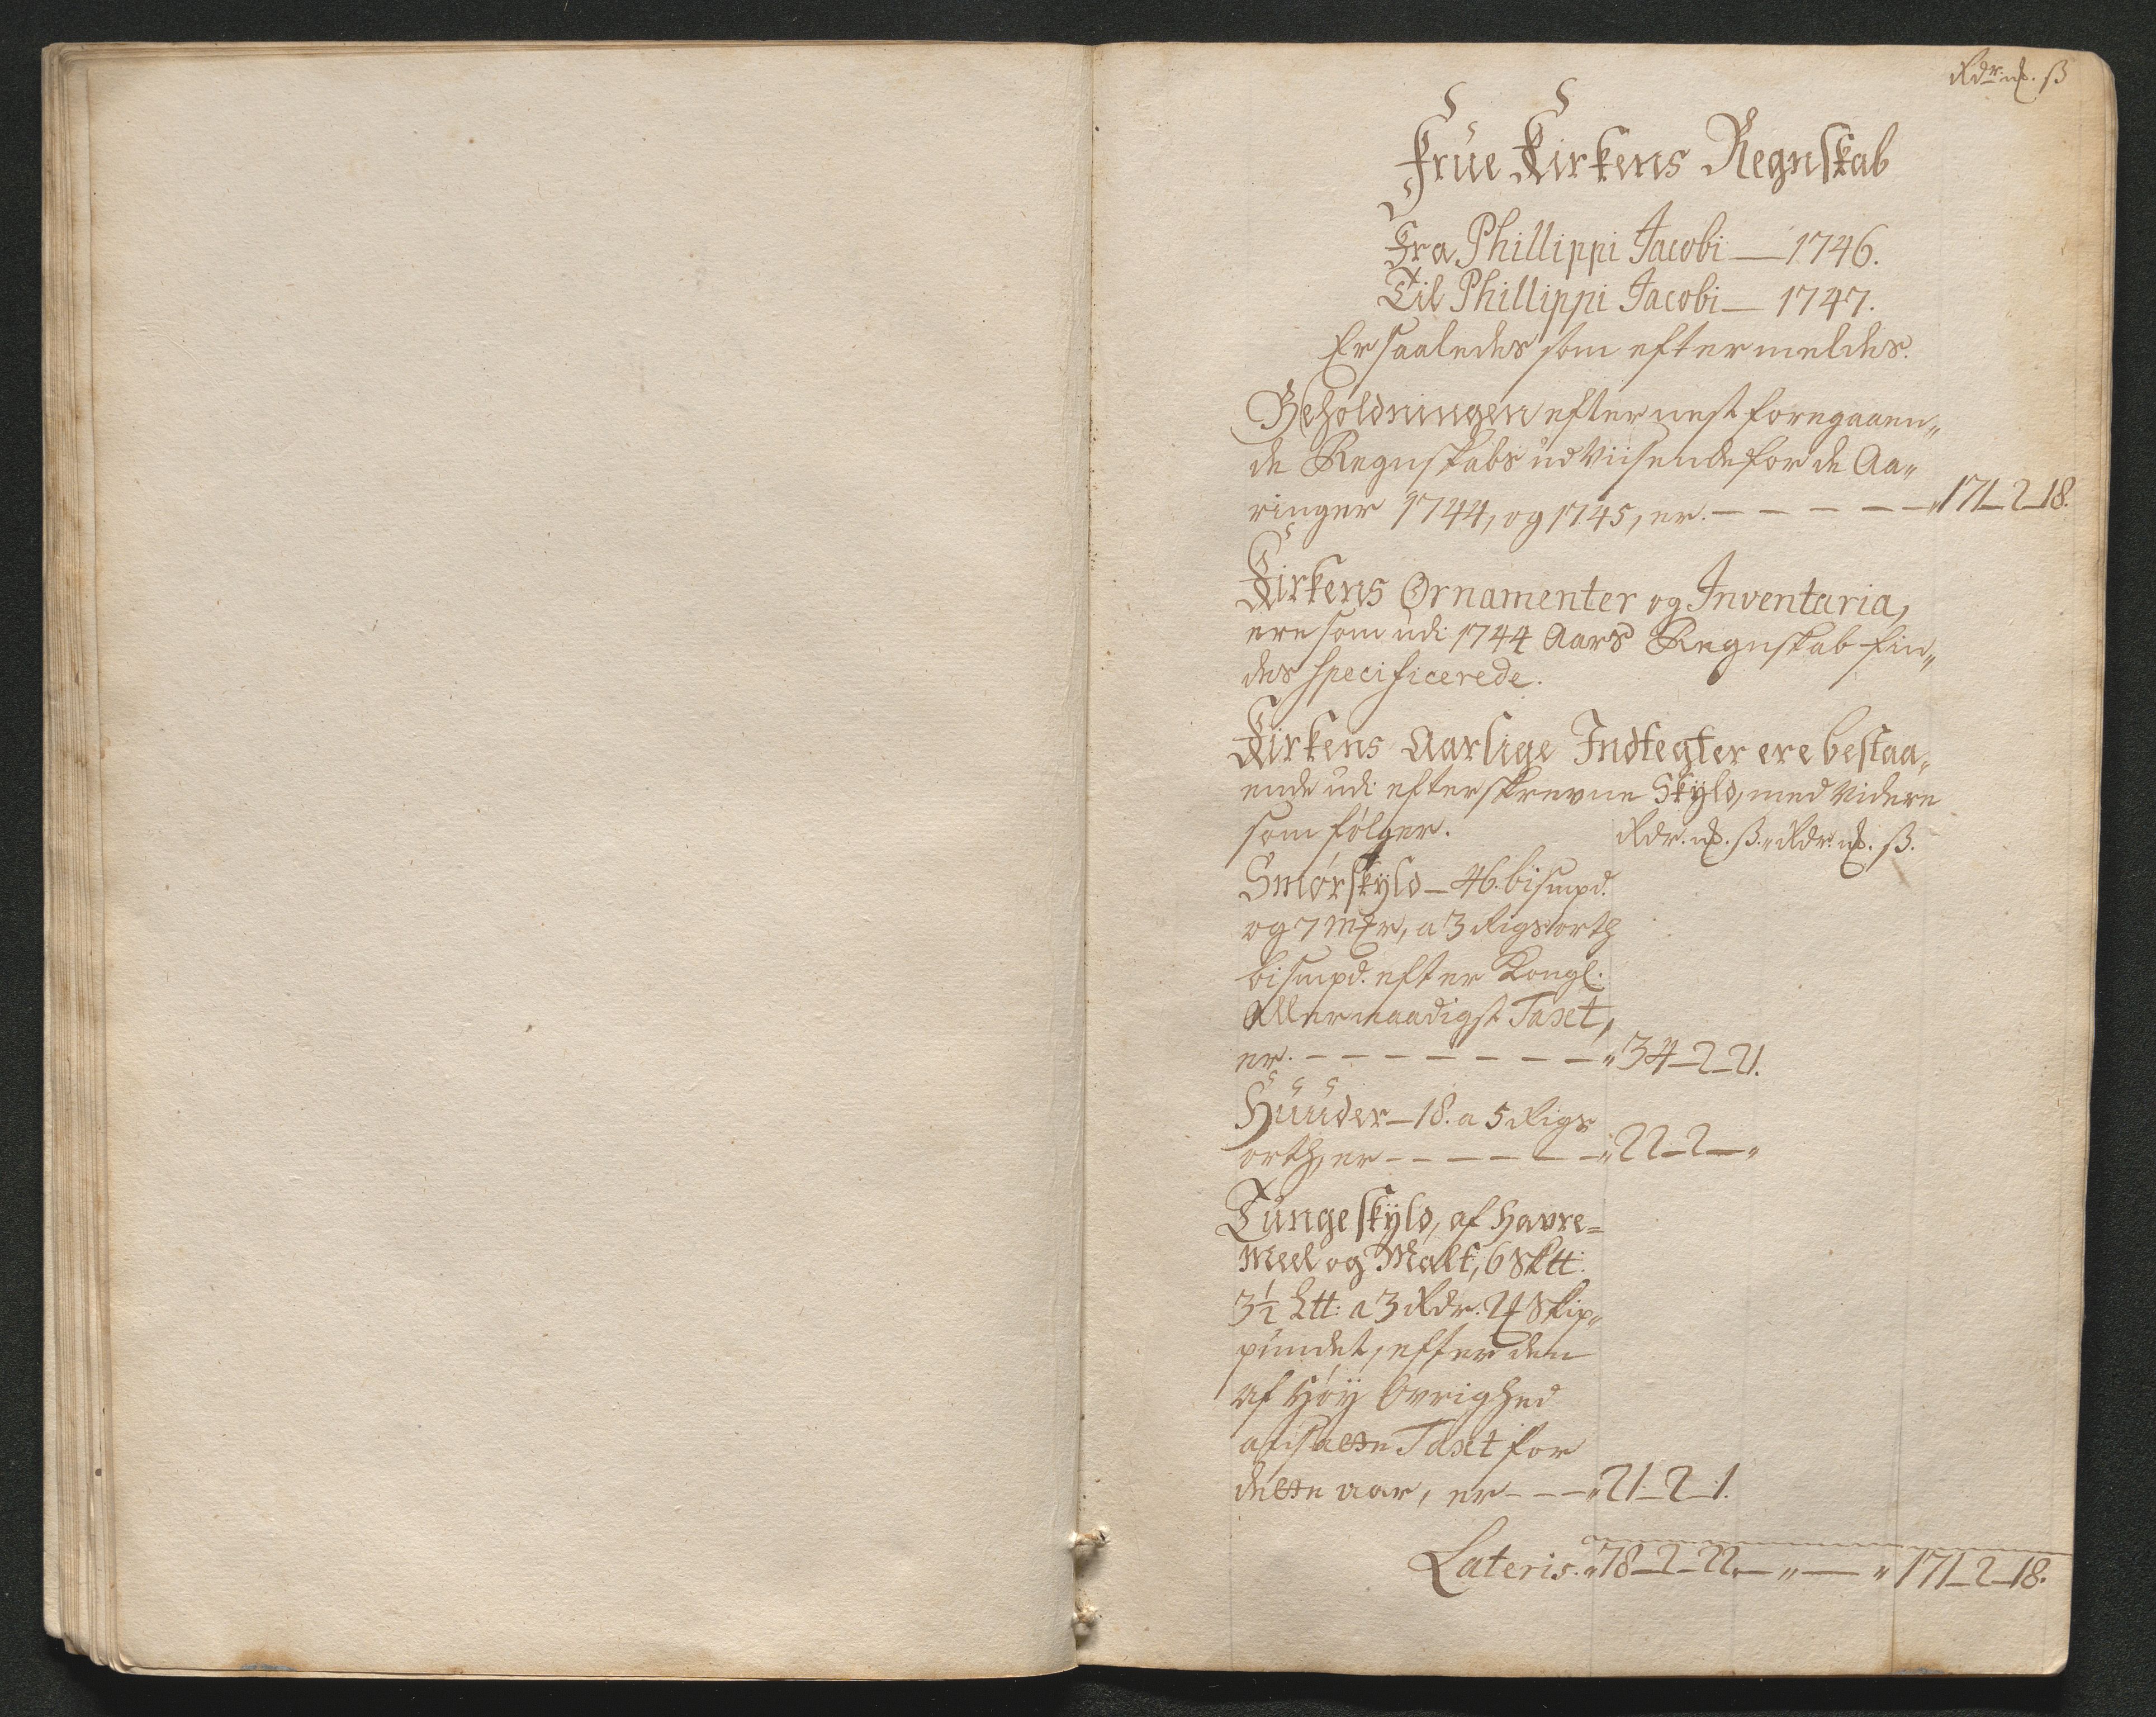 Rdr. mk. ß
Frue Kirkens Regnskab
Fra Phillippi Jacobi — 1746.
Til Phillippi Jacobi — 1747.
Er saaledes som efter meldes.
Beholdningen efter nest foregaaen„
de Regnskabs udviisende for de Aa„
ringer 1744, og 1745, er. — — — — — „171_2_18.
Kirkens Ornamenter og Inventaria,
ere som udi 1744 Aars Regnskab fin„
des specificerede.
Kirkens Aarlige Indtegter ere bestaa„
ende udi efterskrevne Skyld, med videre
som følger. Rdr. mk. ß. „ Rdr. mk. ß.
Smørskyld — 46. bismpd.
og 7 mkr, a 3 Rigsorth
bismpd. efter Kongl.
Allernaadigst Taxt,
er. — — — — — — — — „34_2_21.
Huuder — 18. a 5 Rigs
orth, er — — — — — — „22_2_„
Tungeskyld, af Havre=
Meel og Malt, 6 Sktt:
3½ Ltt: a 3 Rdr. 24 Skip„
pundet, efter den
af Høy Øvrighed
ansatte Taxt for
dette aar, er — — — „21_2_1.
Lateris. „78_2_22._„_„171_2_18.